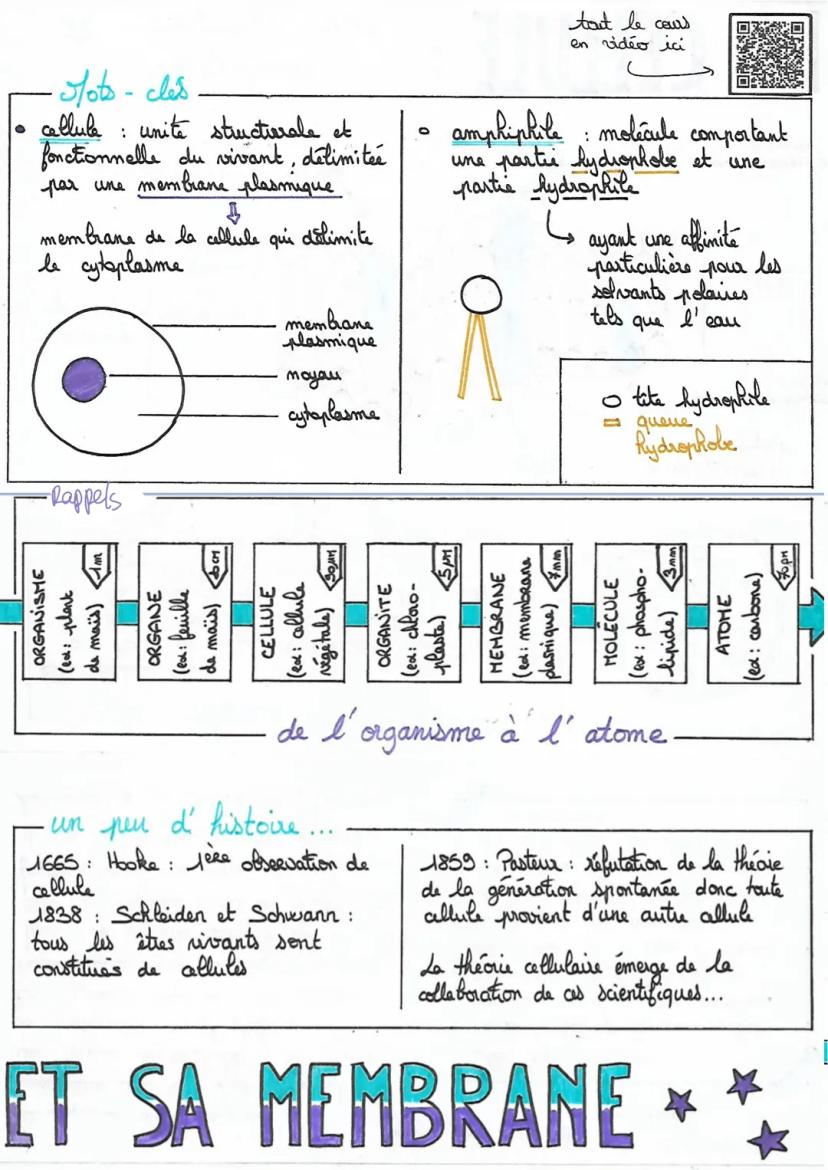 tout le cours
en vidéo ici
Mots-clés
cellule : unité structurale et
fonctionnelle du vivant, délimitée
par une membrane plasmique
membrane de la cellule qui délimite
le cytoplasme
membrane
plasmique
noyau
cytoplasme
amphiphile : molécule comportant
une partie hydrophobe et une
partie hydrophile
ayant une affinité
particulière pour les
solvants polaires
tels que l'eau
tête hydrophile
queue
hydrophobe
Rappels
ORGANISME
(ex: plant
de maïs)
1m
ORGANE
(ex: feuille
de maïs)
CELLULE
(ex: cellule
végétale)
ORGANITE
(ex: chloro-
plaste)
5µm
MEMBRANE
(ex: membrane
plasmique)
7nm
MOLÉCULE
(ex: phospho-
lipide)
3nm
ATOME
(ex: carbone)
70pm
de l'organisme à l'atome
un peu d'histoire...
1665 : Hooke : 1ère observation de
cellule
1838 : Schleiden et Schwann :
tous les êtres vivants sont
constitués de cellules
1859 : Pasteur : réfutation de la théorie
de la génération spontanée donc toute
cellule provient d'une autre cellule
La théorie cellulaire émerge de la
collaboration de ces scientifiques...
ET SA MEMBRANE